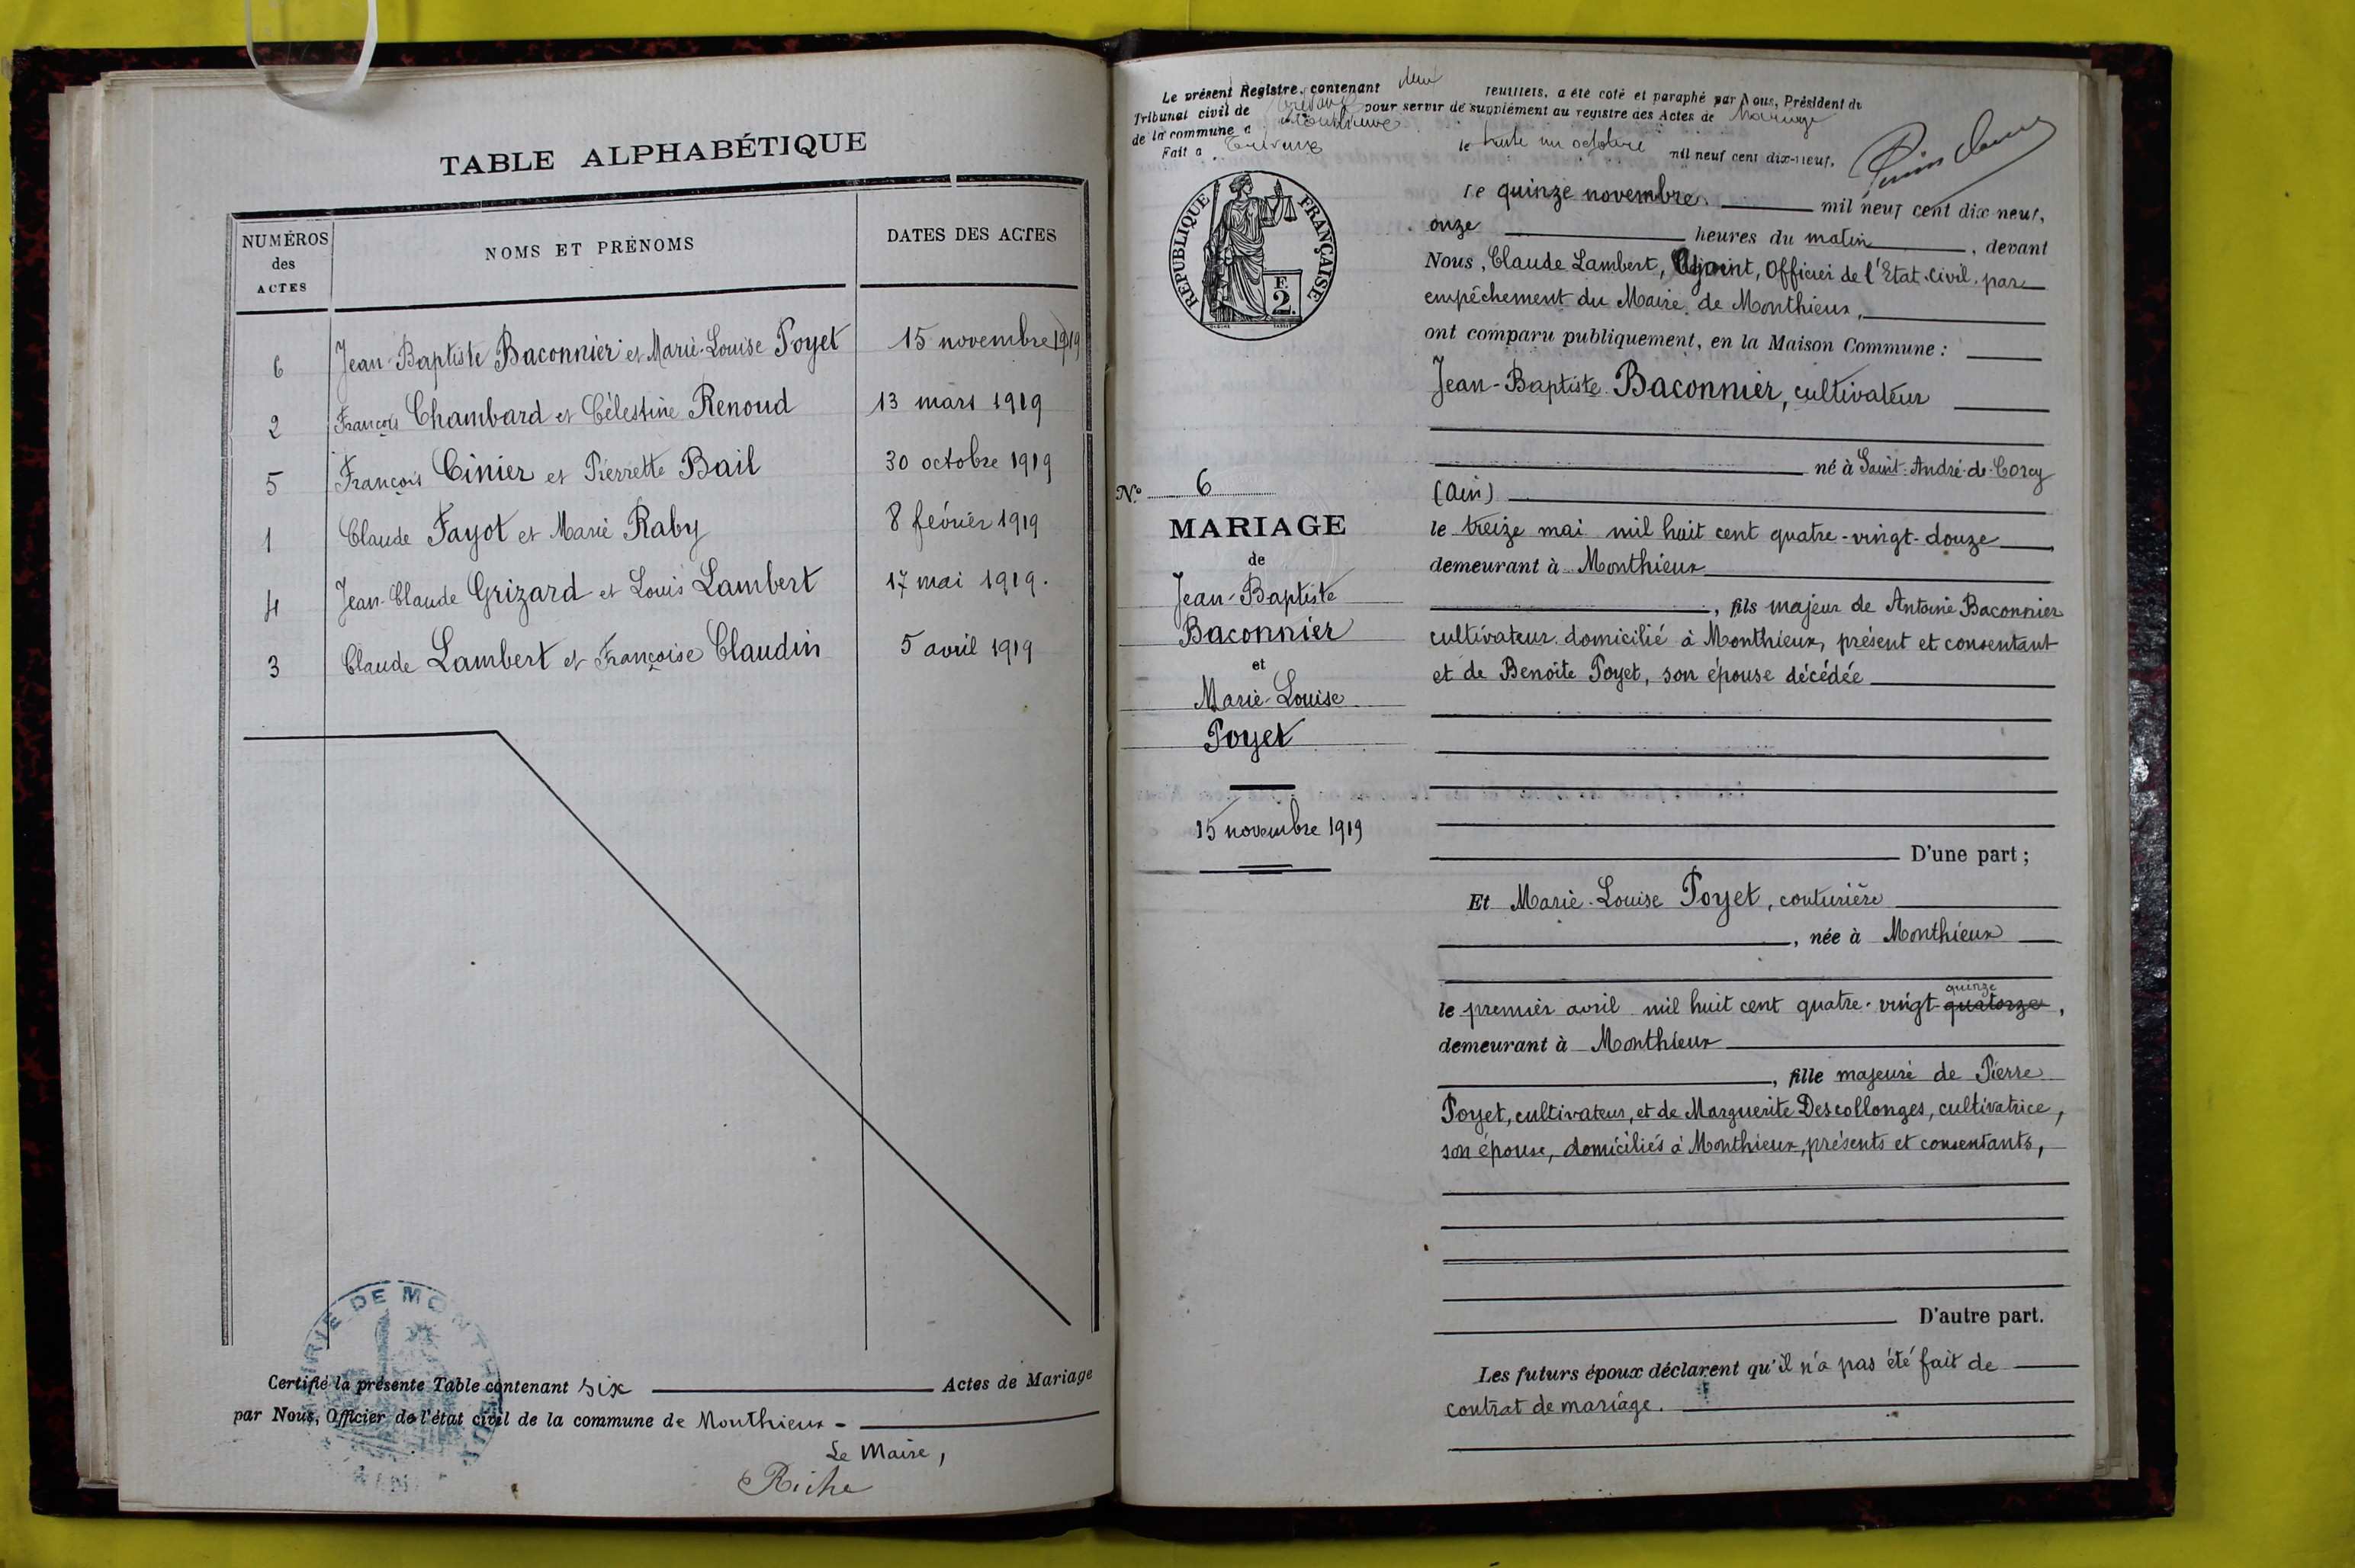 TABLE ALPHABÉTIQUE
NUMÉROS des ACTES
NOMS ET PRÉNOMS
DATES DES ACTES
6 Jean-Baptiste Baconnier et Marie-Louise Poyet 15 novembre 1919
2 François Chambard et Célestine Renoud 13 mars 1919
5 François Cinier et Pierrette Bail 30 octobre 1919
1 Claude Fayot et Marie Raby 8 février 1919
4 Jean-Claude Grizard et Louis Lambert 17 mai 1919.
3 Claude Lambert et Françoise Claudin 5 avril 1919
MAIRIE DE MONTHIEUX
AIN
Certifié la présente Table contenant six Actes de Mariage
par Nous, Officier de l'état civil de la commune de Monthieux -
Le Maire,
Riche
Le présent Registre, contenant deux feuillets, a été coté et paraphé par Nous, Président du
Tribunal civil de Trévoux pour servir de supplément au registre des Actes de Mariage
de la commune d Monthieux
Fait à Trévoux le trente un octobre mil neuf cent dix-neuf.
RÉPUBLIQUE FRANÇAISE
F.
2.
N° 6
MARIAGE
de
Jean-Baptiste
Baconnier
et
Marie-Louise
Poyet
15 novembre 1919
Le quinze novembre mil neuf cent dix neuf,
onze heures du matin, devant
Nous, Claude Lambert, Adjoint, Officier de l'Etat-Civil, par
empêchement du Maire de Monthieux,
ont comparu publiquement, en la Maison Commune :
Jean-Baptiste Baconnier, cultivateur
né à Saint-André-de-Corcy
(Ain)
le treize mai mil huit cent quatre-vingt-douze
demeurant à Monthieux
, fils majeur de Antoine Baconnier
cultivateur domicilié à Monthieux, présent et consentant
et de Benoîte Poyet, son épouse décédée
D'une part ;
Et Marie-Louise Poyet, couturière
, née à Monthieux
quinze
le premier avril mil huit cent quatre-vingt-quatorze,
demeurant à Monthieux
, fille majeure de Pierre
Poyet, cultivateur, et de Marguerite Descollonges, cultivatrice,
son épouse, domiciliés à Monthieux, présents et consentants,
D'autre part.
Les futurs époux déclarent qu'il n'a pas été fait de
contrat de mariage.